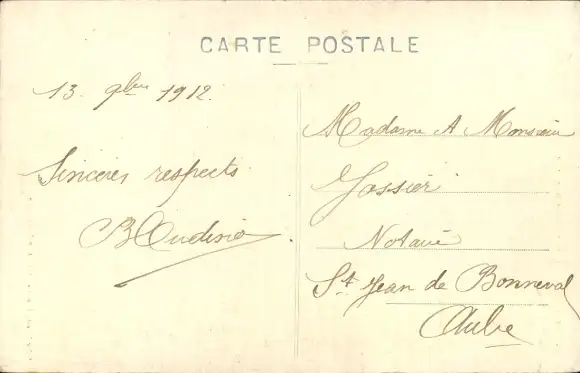 CARTE POSTALE
13. 9bre 1912.
Sincères respects
Madame & Monsieur
Notaire
St Jean de Bonneval
Aube